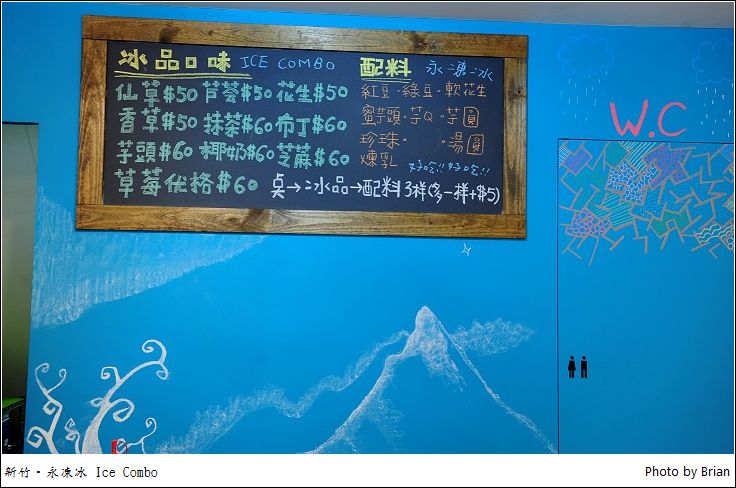 冰品口味 ICE COMBO
仙草$50 芦荟$50 花生$50
香草$50 抹茶$60 布丁$60
芋頭$60 椰奶$60 芝麻$60
草莓优格$60
配料 永凍冰
紅豆·綠豆·軟花生
蜜芋頭·芋Q·芋圓
珍珠· ·湯圓
煉乳 好吃!!好吃!!
桌→冰品→配料3样(多一样+$5)
W.C
新竹·永凍冰 Ice Combo
Photo by Brian